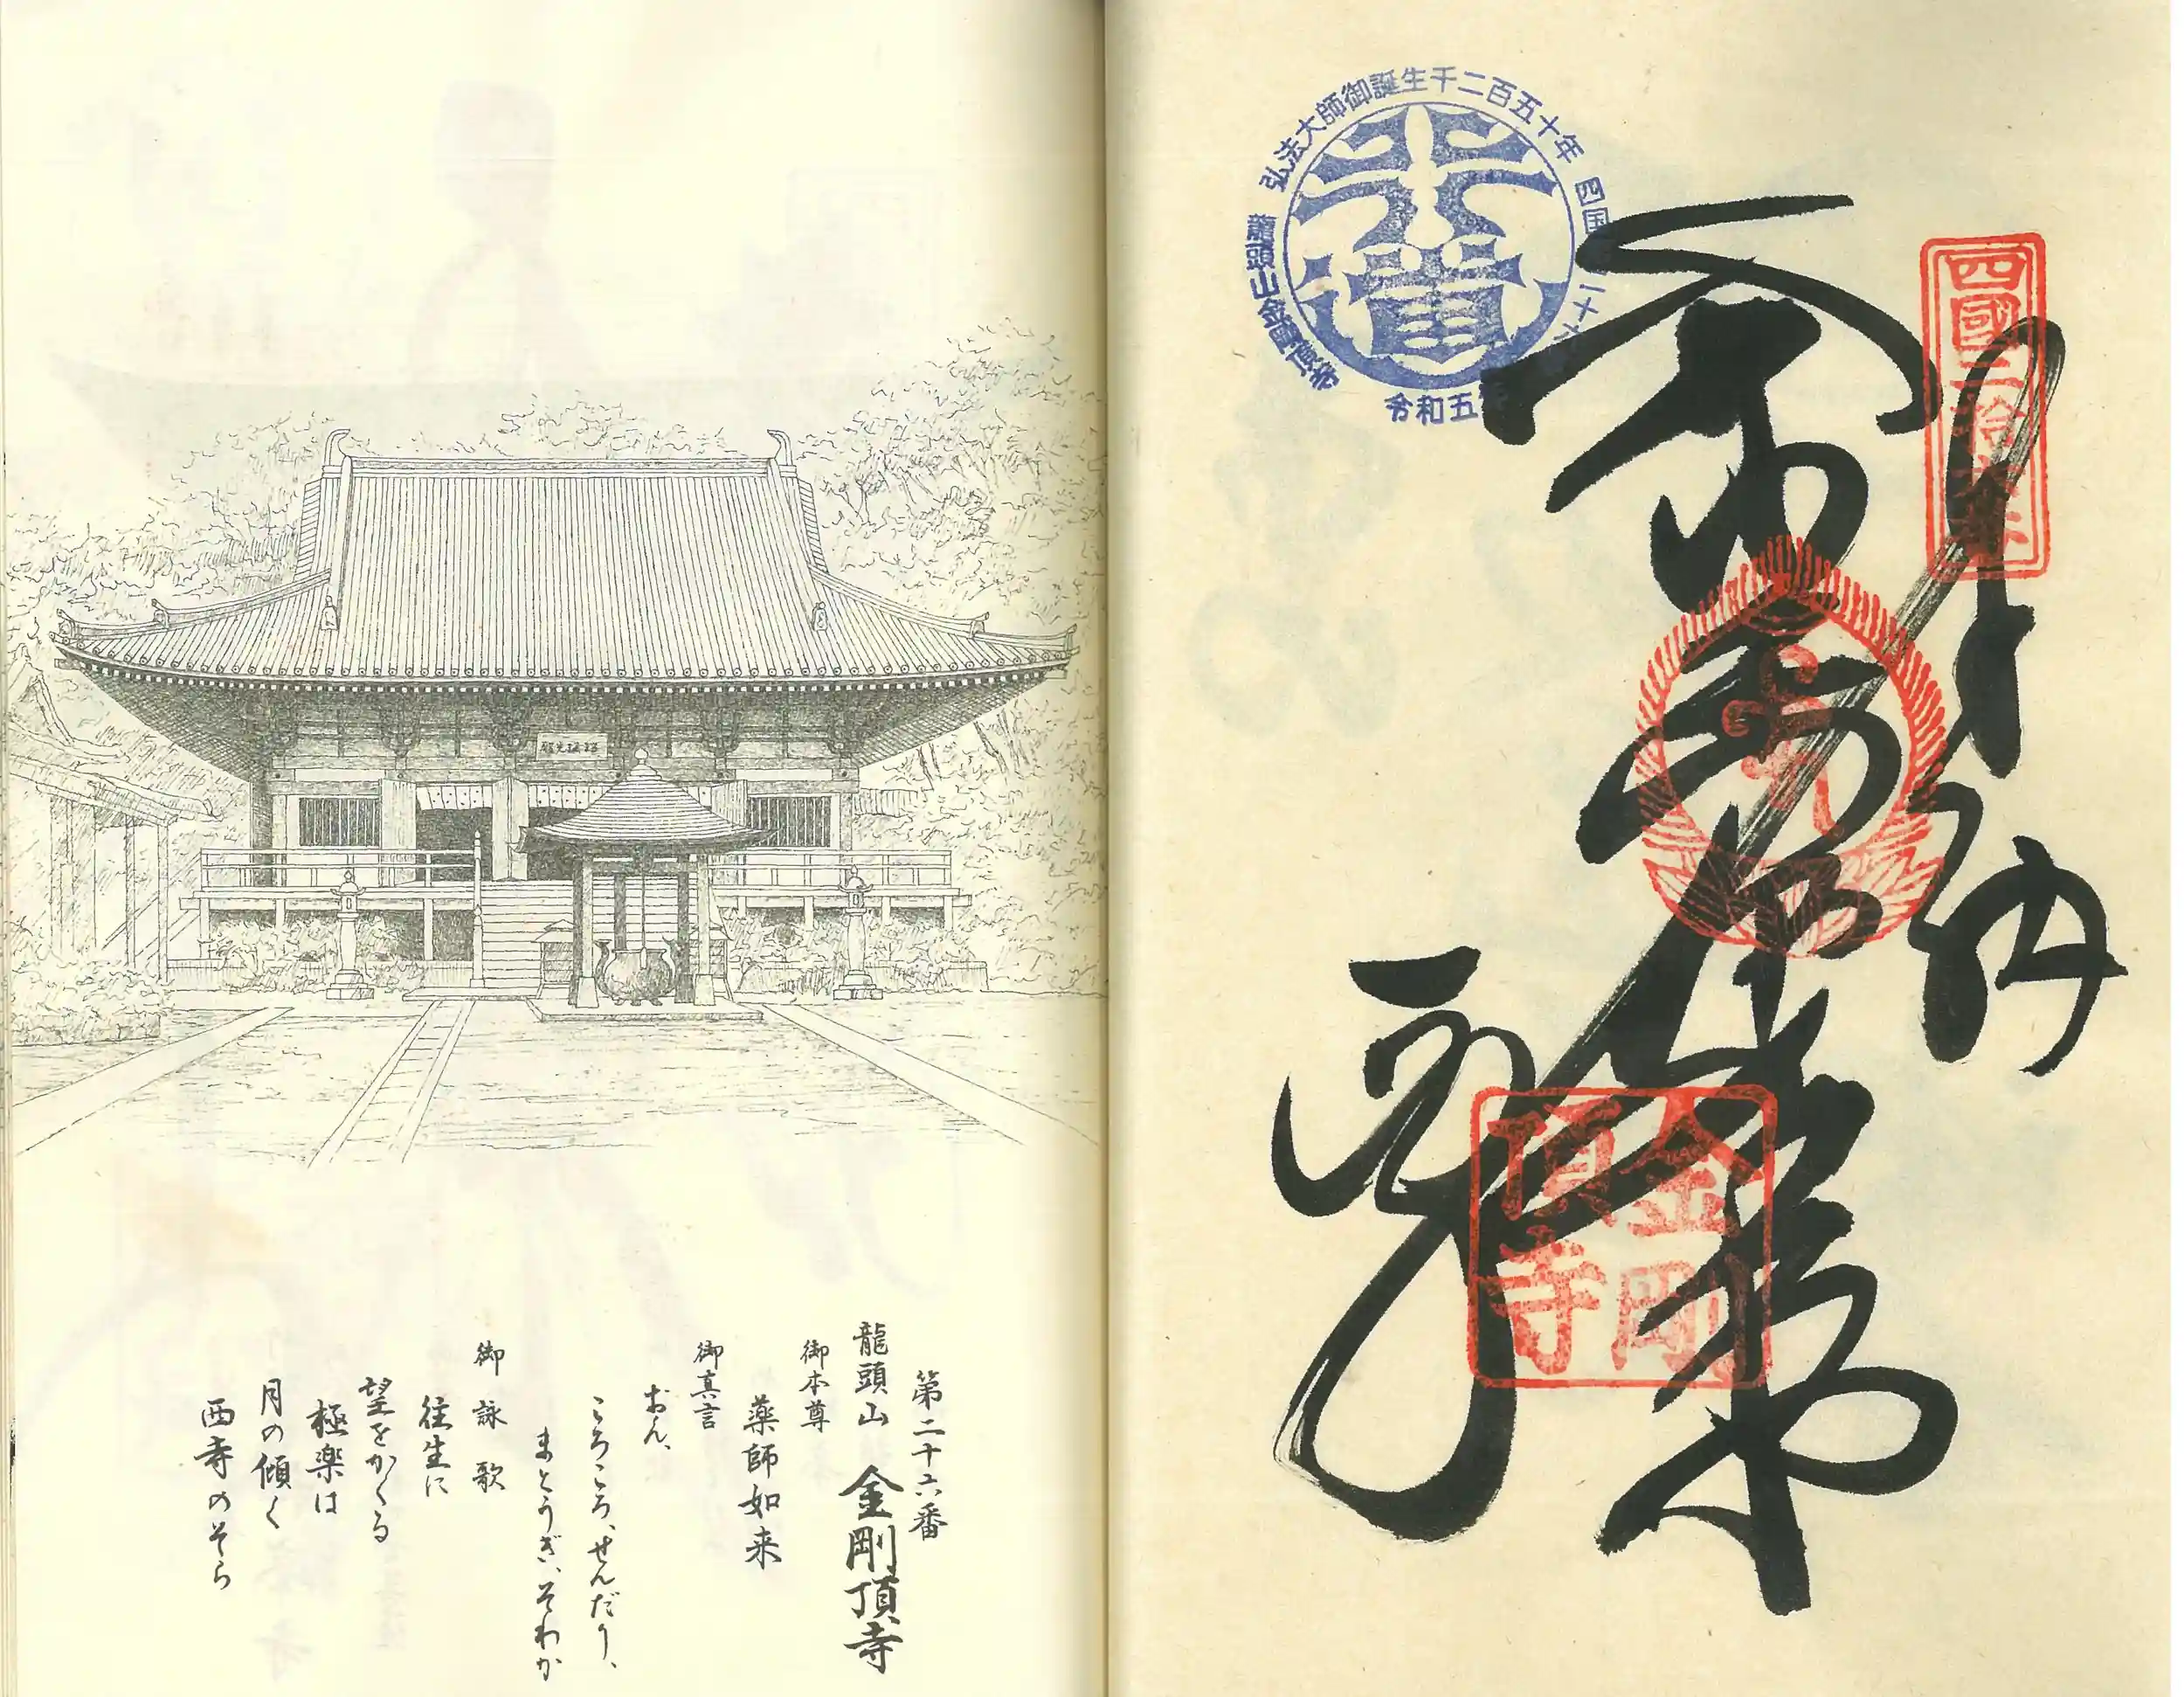 弘法大師御誕生千二百五十年
四国
二十
龍頭山金剛頂寺
令和五年
四國二拾六番
奉納
金剛頂寺
第二十六番
龍頭山 金剛頂寺
御本尊
薬師如来
御真言
おん、
ころころ、せんだり、
まとうぎ、そわか
御詠歌
往生に
望をかくる
極楽は
月の傾く
西寺のそら